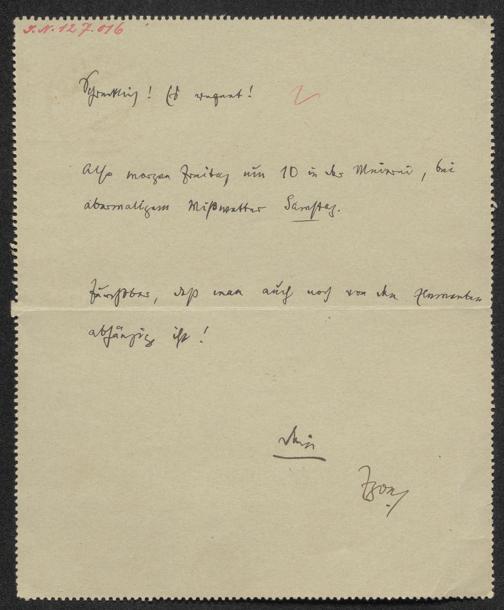 I.N. 127.016
Schrecklich! Es regnet!
Also morgen Freitag um 10 in der Meierei, bei
abermaligem Mißwetter Samstag.
Furchtbar, daß man auch noch von den Elementen
abhängig ist!